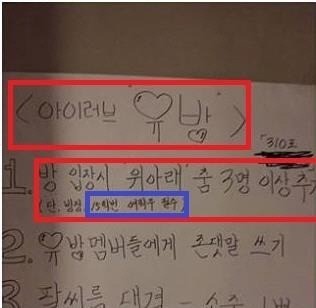 < 아이러브 '♡유방' >
「310호
1. 방 입장시 '위아래' 춤 3명 이상 추
(단, 방장, 15학번 여학우 필수)
2. ♡유방 멤버들에게 존댓말 쓰기
3.